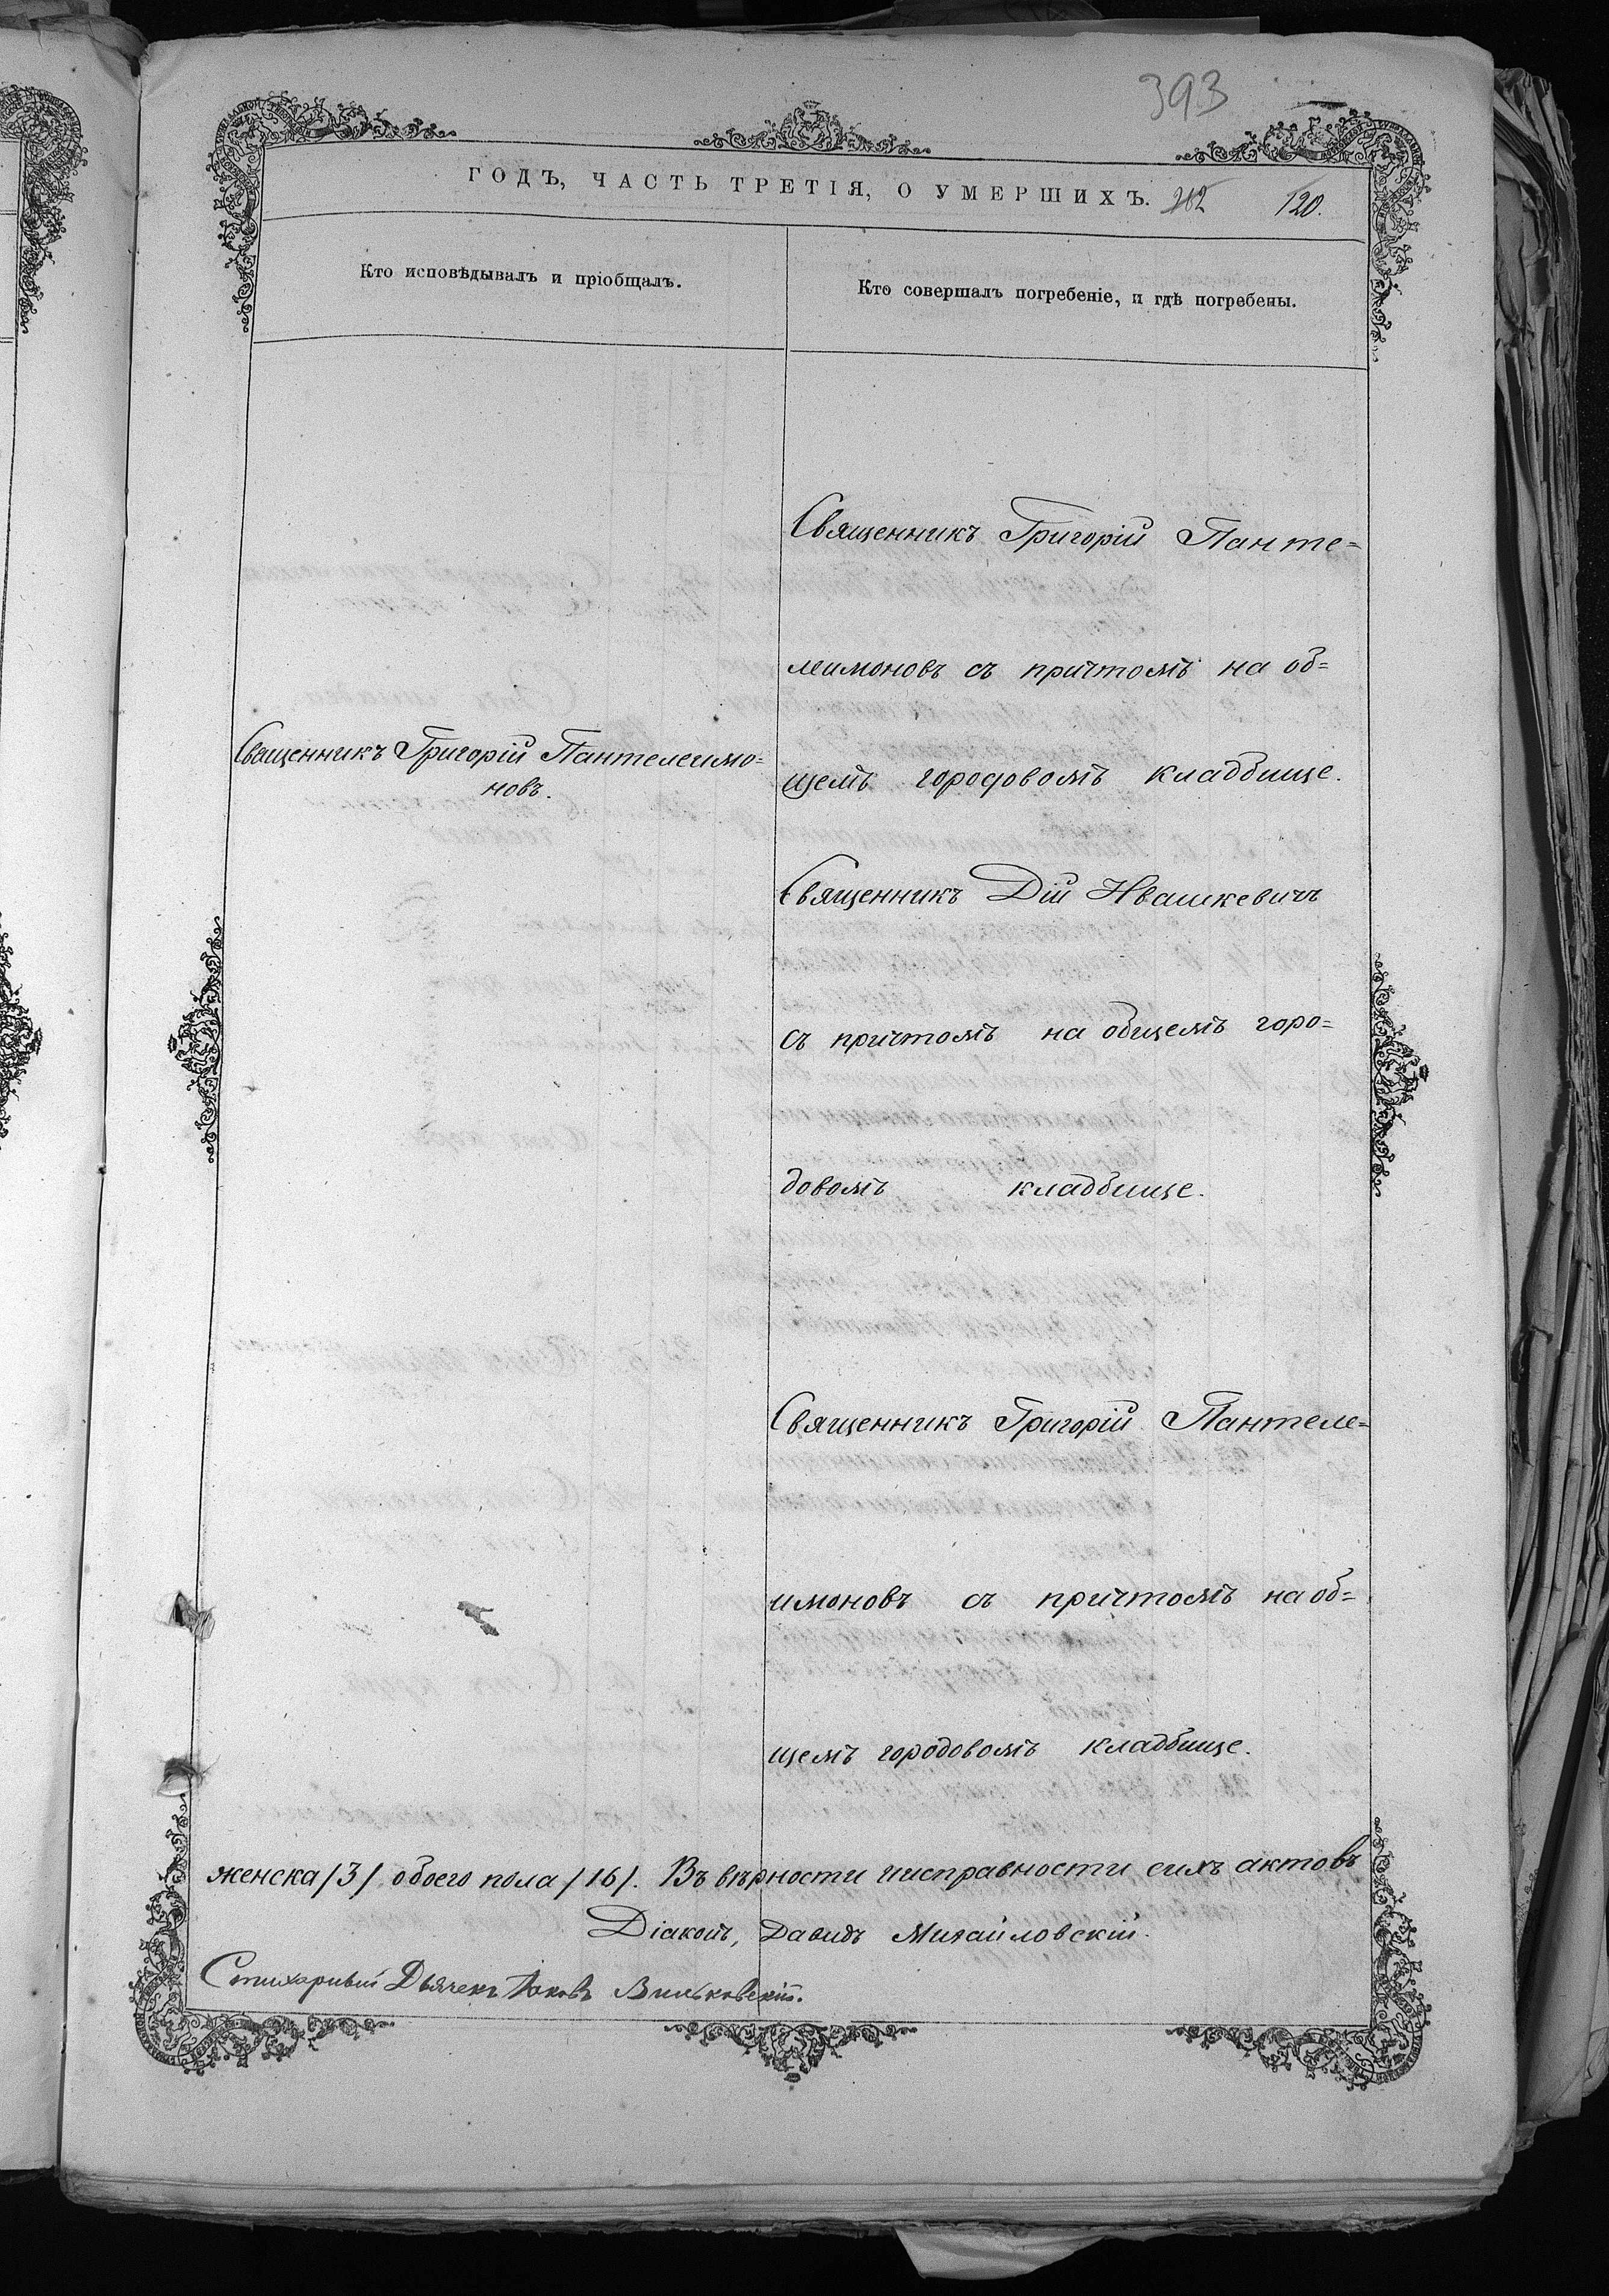 393
ГОДЪ, ЧАСТЬ ТРЕТІЯ, О УМЕРШИХЪ. 212 120.
Кто исповѣдывалъ и пріобщалъ.
Кто совершалъ погребеніе, и гдѣ погребены.
Священникъ Григорій Панте=
леимоновъ съ причтомъ на об=
щемъ городовомъ кладбище.
Священникъ Григорій Пантелеимо=
новъ.
Священникъ Дій Ивашкевичъ
съ причтомъ на общемъ горо=
довомъ кладбище.
Священникъ Григорій Пантеле=
имоновъ съ причтомъ на об=
щемъ городовомъ кладбище.
женска /3/ обоего пола /16/. Въ вѣрности и исправности сихъ актовъ
Діаконъ, Давидъ Михайловскій.
Стихарный Дьячекъ Яковъ Вильковскій.